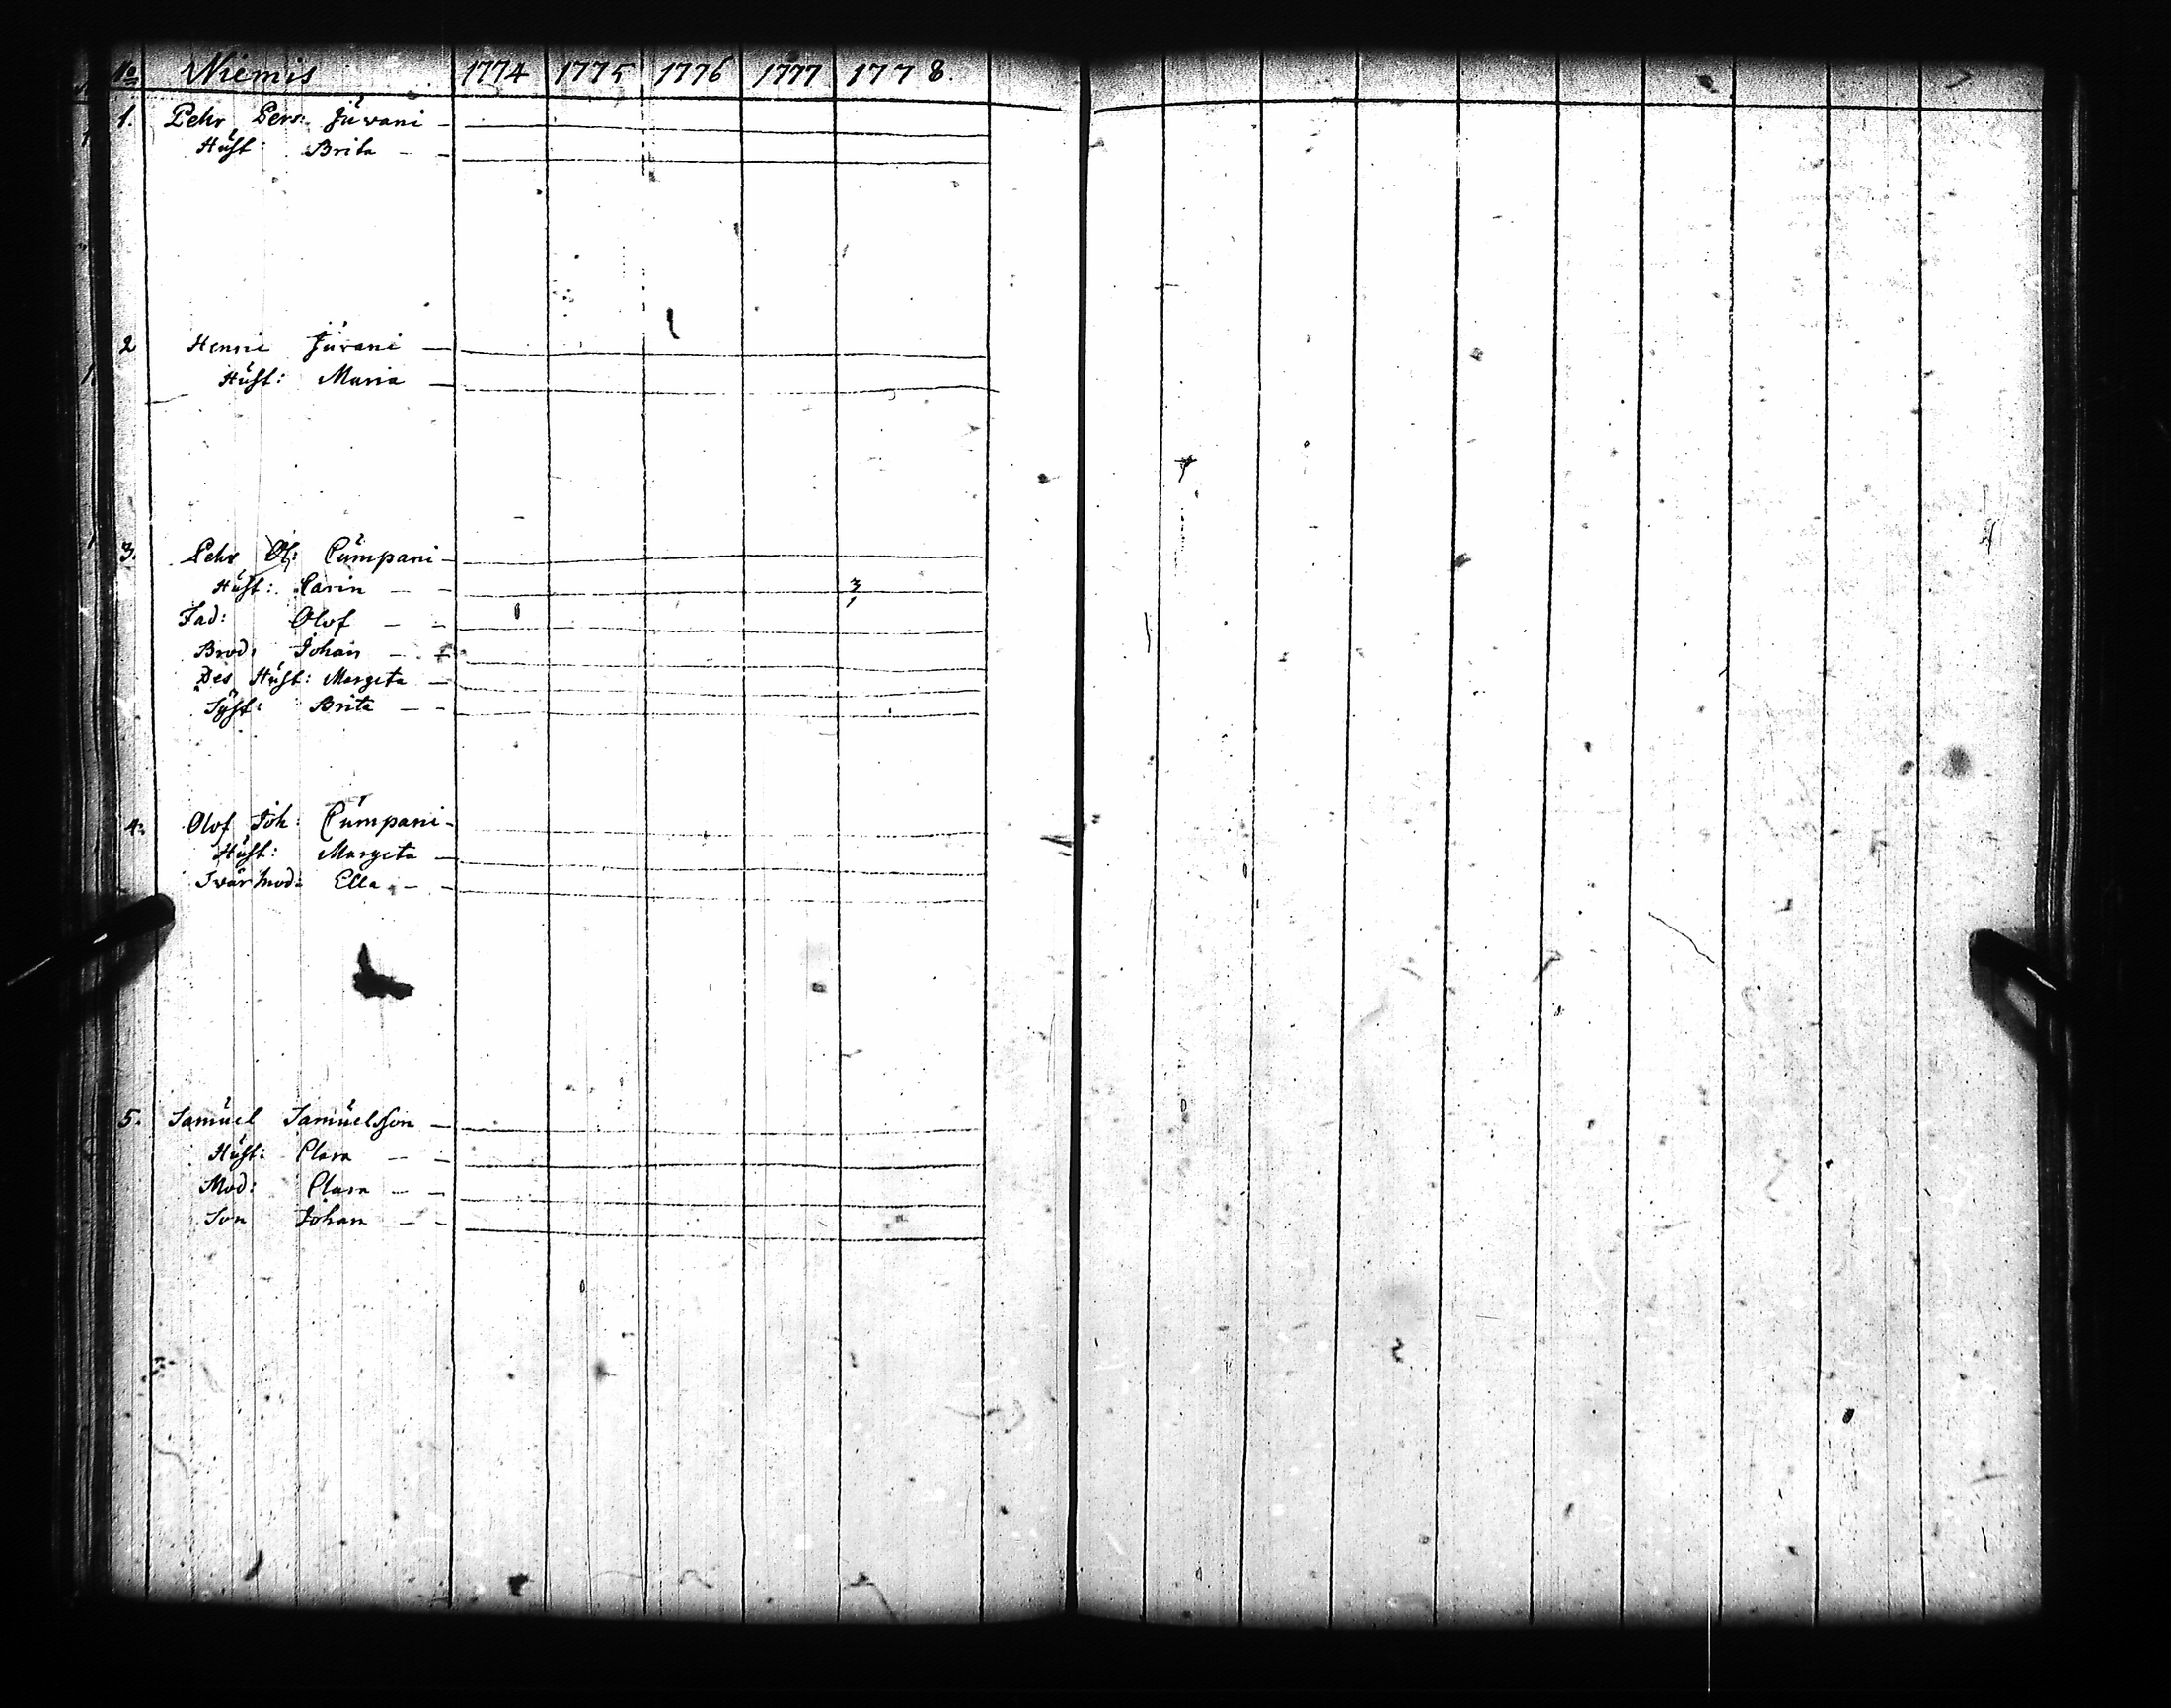 No Niemis 1774 1775 1776 1777 1778
1. Pehr Pers: Juvani
Hust: Brita
2 Henric Juvani
Hust: Maria
3. Pehr Ol: Cumpani
Hust: Carin 3/1
Fad: Olof
Brod: Johan
Des Hust: Margeta
Syst: Brita
4: Olof Joh: Cumpani
Hust: Margeta
Svärmod: Ella
5. Samuel Samuelsson
Hust: Clara
Mod: Clara
Son Johan